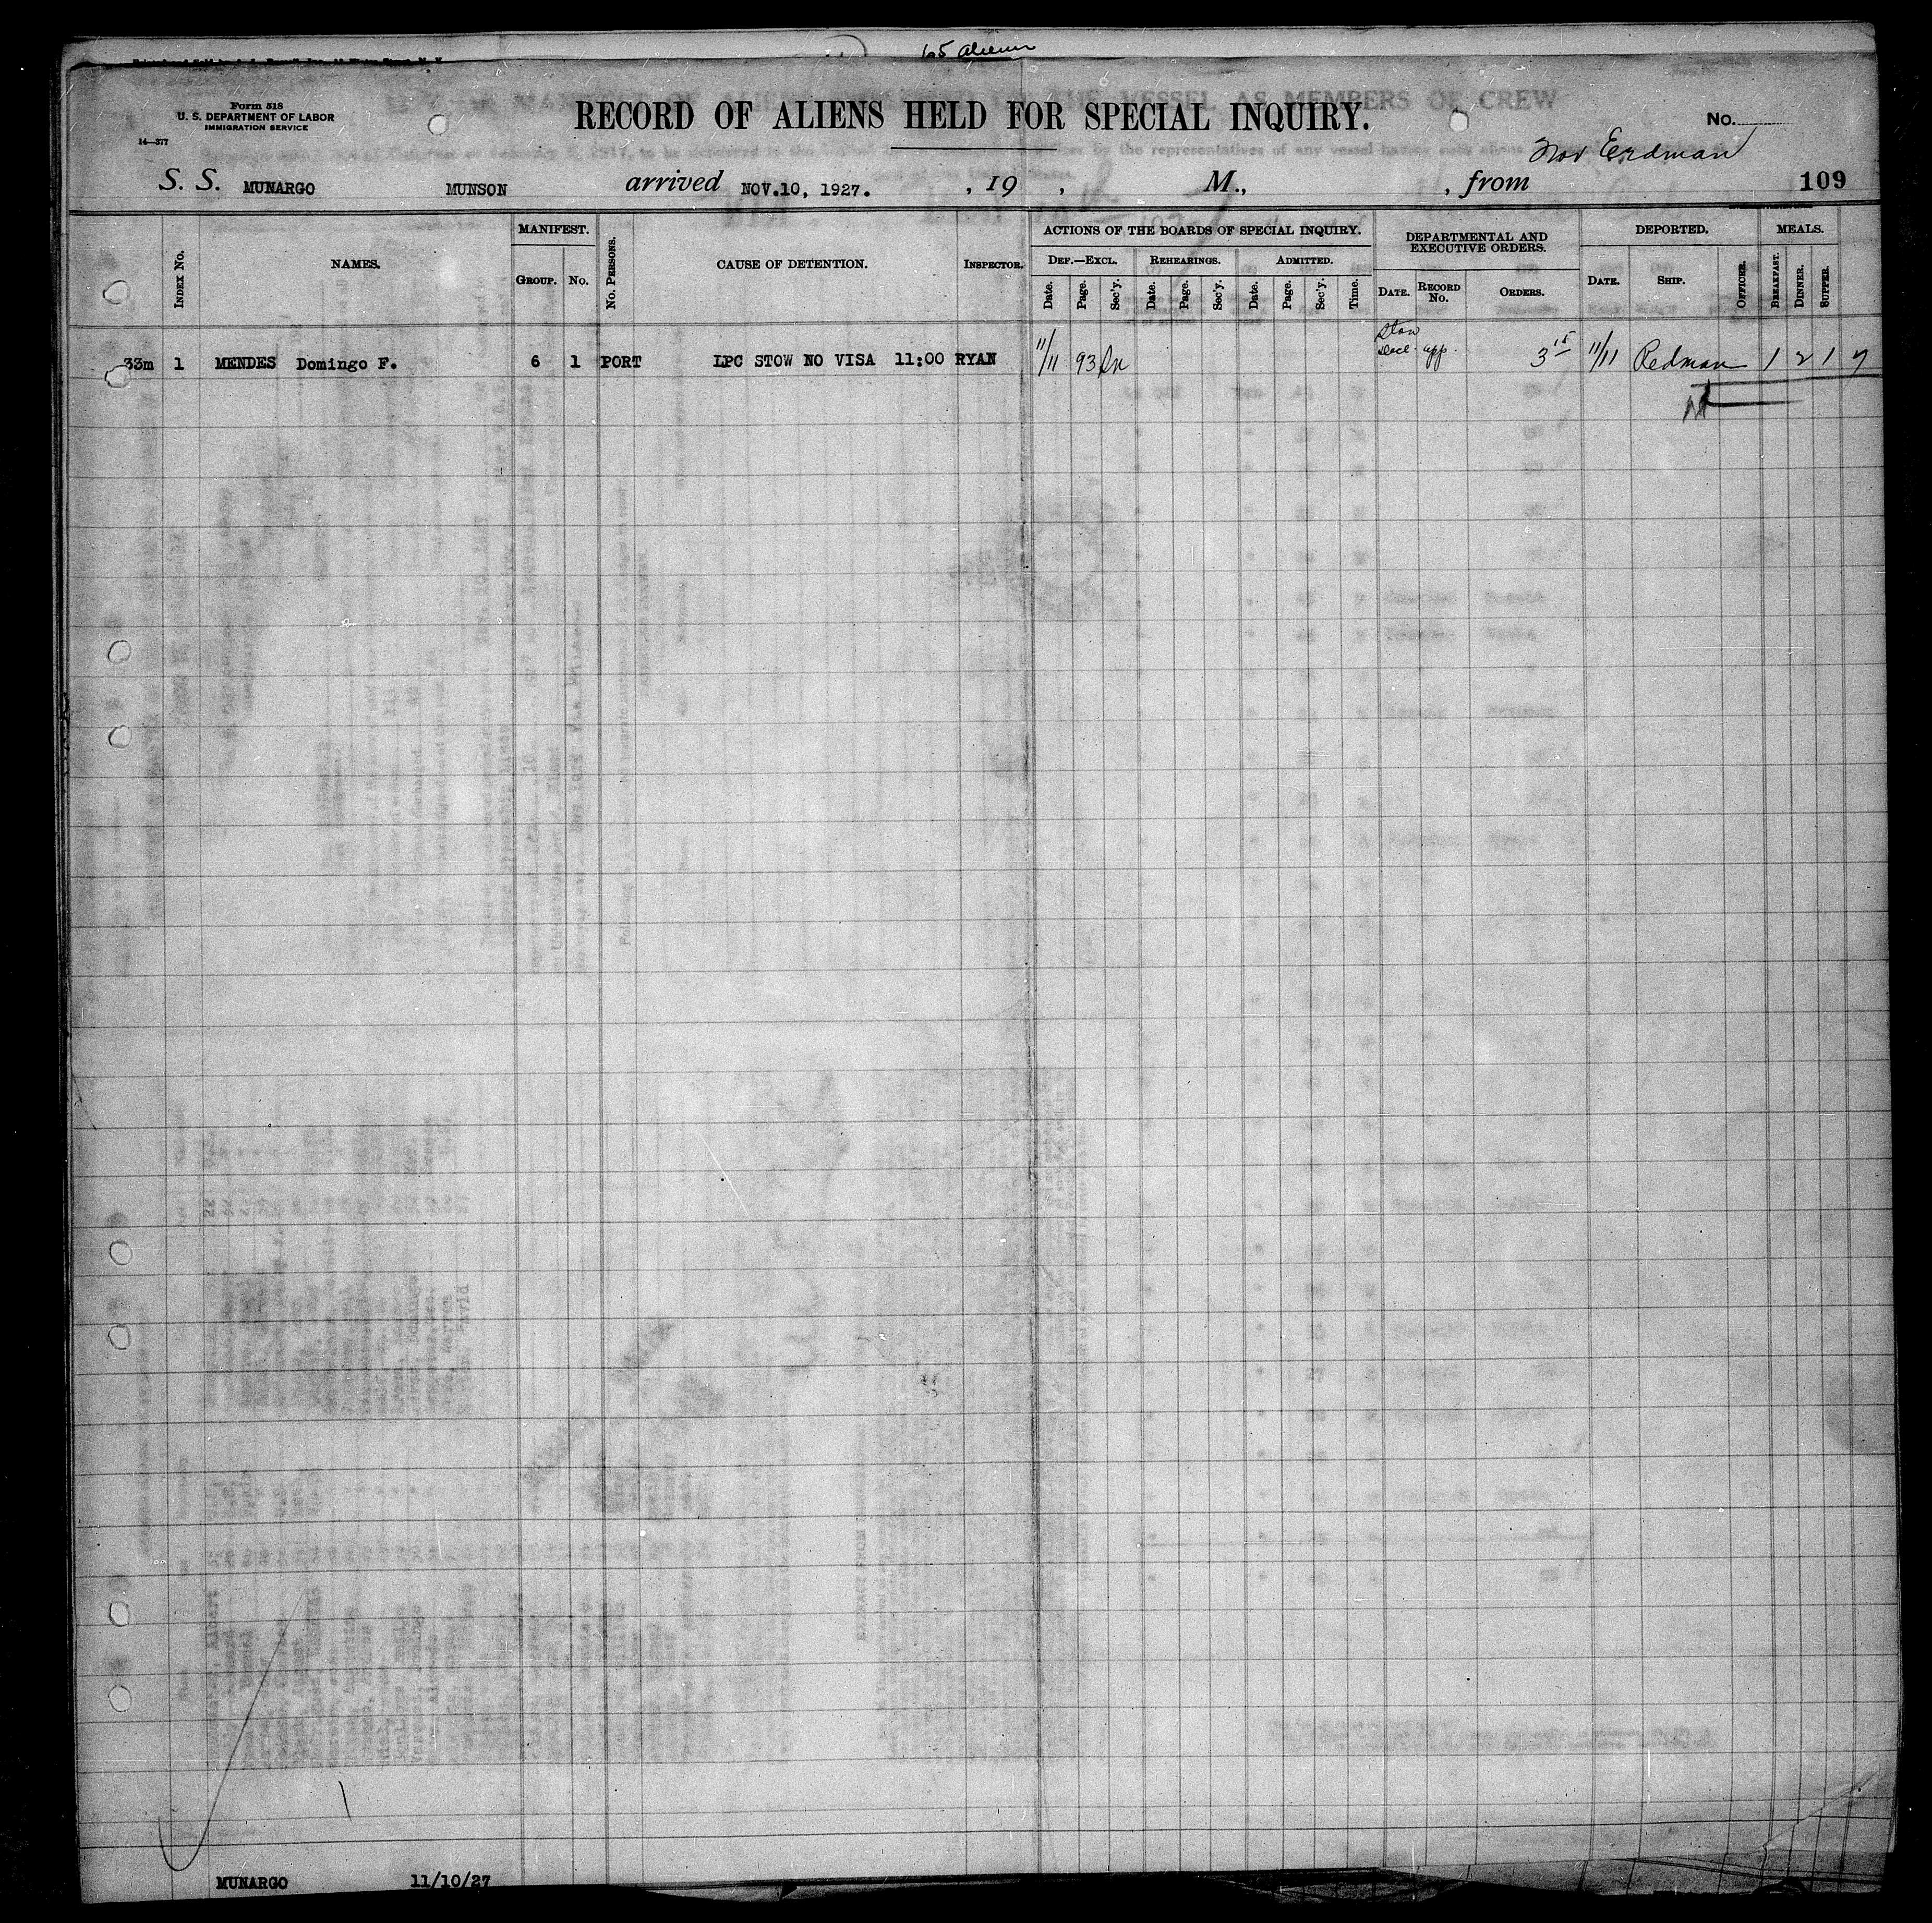 65 Aliens
Form 518
U. S. DEPARTMENT OF LABOR
IMMIGRATION SERVICE
14—377
RECORD OF ALIENS HELD FOR SPECIAL INQUIRY.
No.
Erdman
S. S. MUNARGO MUNSON arrived NOV.10, 1927. , 19 , M., , from 109
INDEX No.
NAMES.
MANIFEST.
GROUP. No.
No. PERSONS.
CAUSE OF DETENTION.
INSPECTOR.
ACTIONS OF THE BOARDS OF SPECIAL INQUIRY.
DEF.—EXCL. REHEARINGS. ADMITTED.
Date. Page. Sec'y. Date. Page. Sec'y. Date. Page. Sec'y. Time.
DEPARTMENTAL AND
EXECUTIVE ORDERS.
DATE. RECORD No. ORDERS.
DEPORTED.
DATE. SHIP. OFFICER.
MEALS.
BREAKFAST. DINNER. SUPPER.
Stow
33m 1 MENDES Domingo F. 6 1 PORT LPC STOW NO VISA 11:00 RYAN 11/11 93 app. 3 15 11/11 Redman 1 2 1
MUNARGO 11/10/27